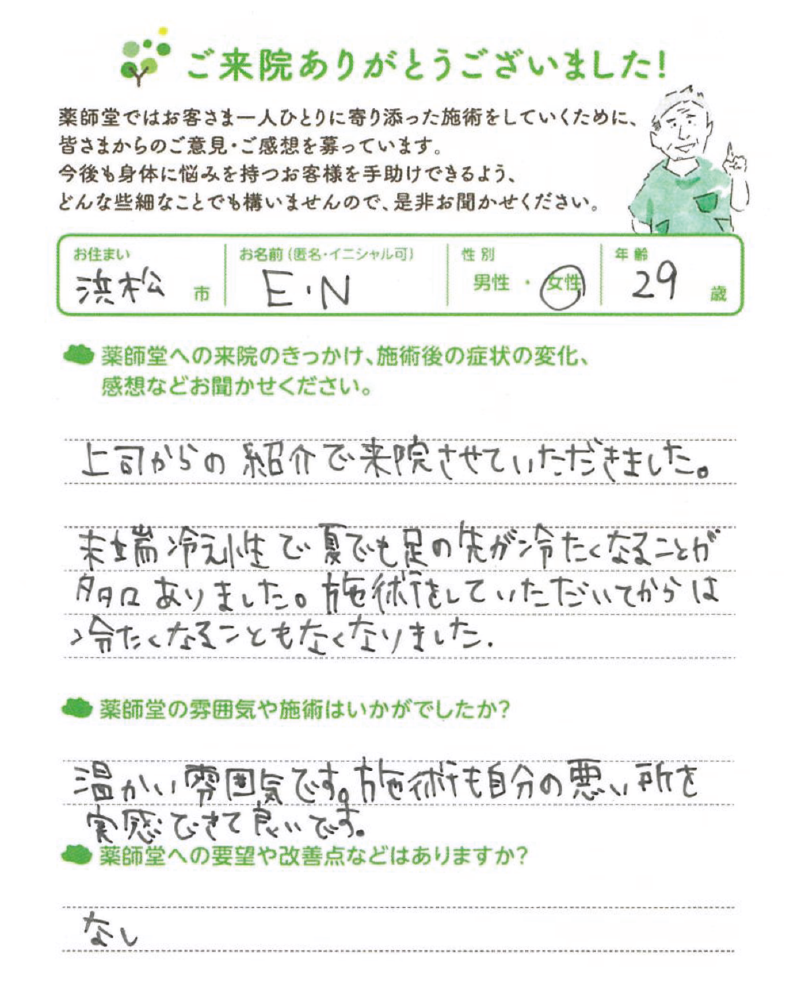 ご来院ありがとうございました!
薬師堂ではお客さま一人ひとりに寄り添った施術をしていくために、
皆さまからのご意見・ご感想を募っています。
今後も身体に悩みを持つお客様を手助けできるよう、
どんな些細なことでも構いませんので、是非お聞かせください。
お住まい お名前(匿名・イニシャル可) 性別 年齢
浜松市 E・N 男性・女性 29歳
薬師堂への来院のきっかけ、施術後の症状の変化、
感想などお聞かせください。
上司からの紹介で来院させていただきました。
末端冷え性で夏でも足の先が冷たくなることが
多々ありました。施術をしていただいてからは
冷たくなることもなくなりました.
薬師堂の雰囲気や施術はいかがでしたか?
温かい雰囲気です。施術も自分の悪い所を
実感できて良いです。
薬師堂への要望や改善点などはありますか?
なし